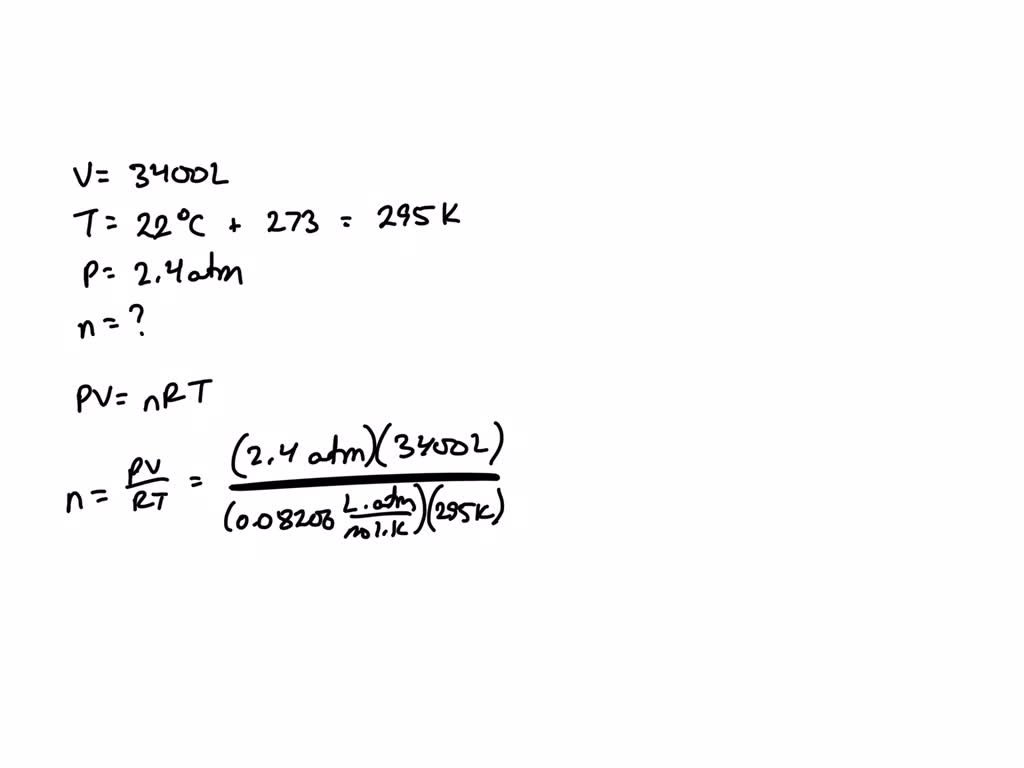 V= 3400L
T= 22°C + 273 = 295K
P= 2.4 atm
n = ?
PV= nRT
n = PV/RT = (2.4 atm)(3400L)/(0.08206 L.atm/mol.K)(295K)